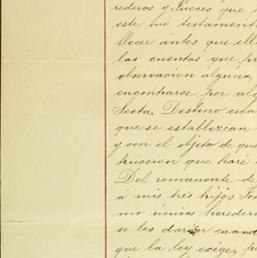 rederos y Jueces que
este mi testamento
llecer ántes que ell
las cuentas que pr
observacion alguna,
encontrarse por al
Sexta. Destino cua
que se establezcan
y con el objeto de que
truccion que haré
Del remanente de
á mis trés hijos Jo
mo unicos heredero
se les darán cuand
que la ley exige, p